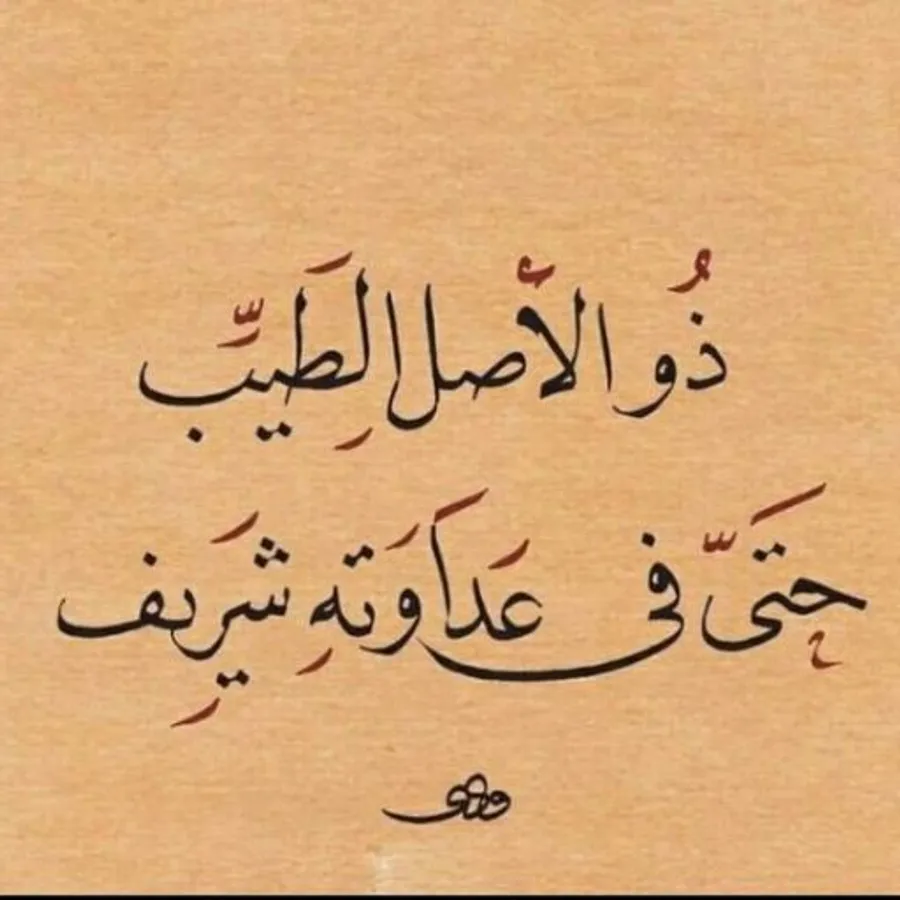 ذُو الأَصلِ الَطيِّب
حَتىَّ فى عَداَوَتهِ شَرِيف